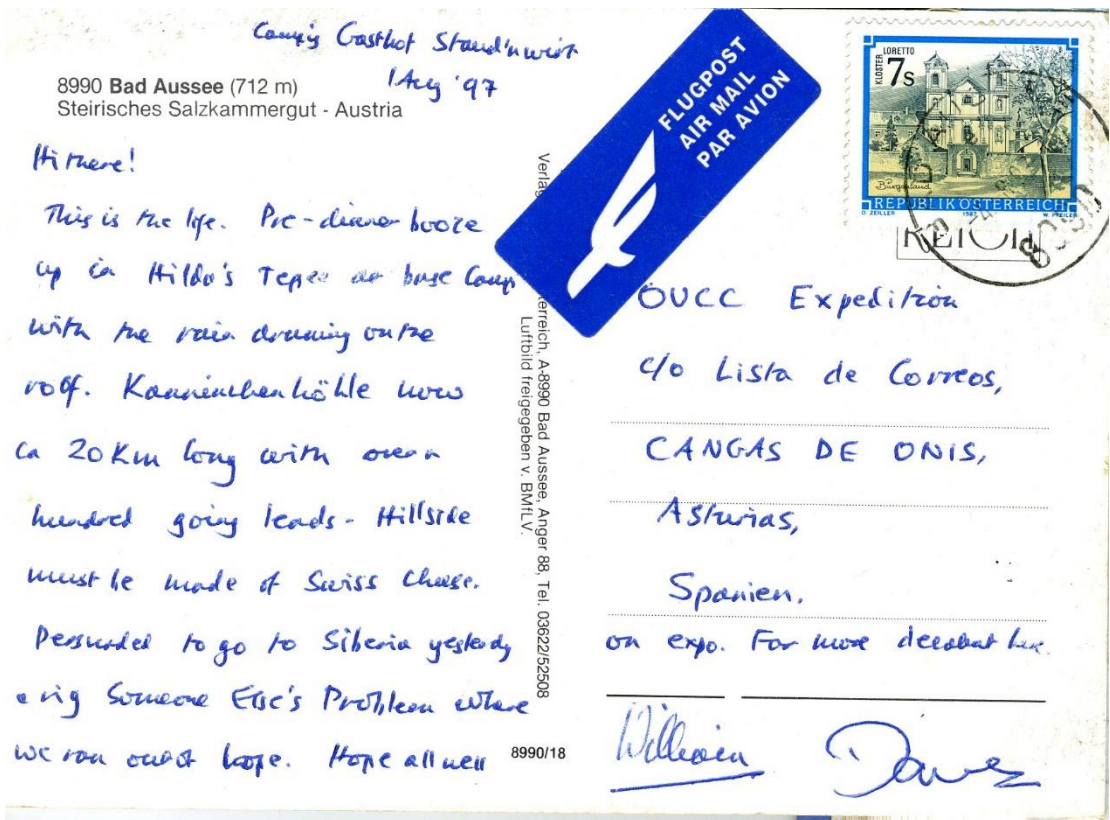 Camping Gasthof Staud'nwirt
1 Aug '97
8990 Bad Aussee (712 m)
Steirisches Salzkammergut - Austria
Hi there!
This is the life. Pre-dinner booze
up in Hilda's Tepee at base Camp
with the rain drumming on the
roof. Kaninchenhöhle now
ca 20 Km long with over a
hundred going leads - Hillside
must be made of Swiss Cheese.
Persuaded to go to Siberia yesterday
& rig Someone Else's Problem where
we ran out of rope. Hope all well
Verlag
erreich, A-8990 Bad Aussee, Anger 88, Tel. 03622/52508
Luftbild freigegeben v. BMfLV.
8990/18
FLUGPOST
AIR MAIL
PAR AVION
KLOSTER LORETTO
7s
Burgenland
REPUBLIK ÖSTERREICH
O. ZEILLER 1987 W. PFEILER
OUCC Expedition
c/o Lista de Correos,
CANGAS DE ONIS,
Asturias,
Spanien.
on expo. For more here.
William Dave